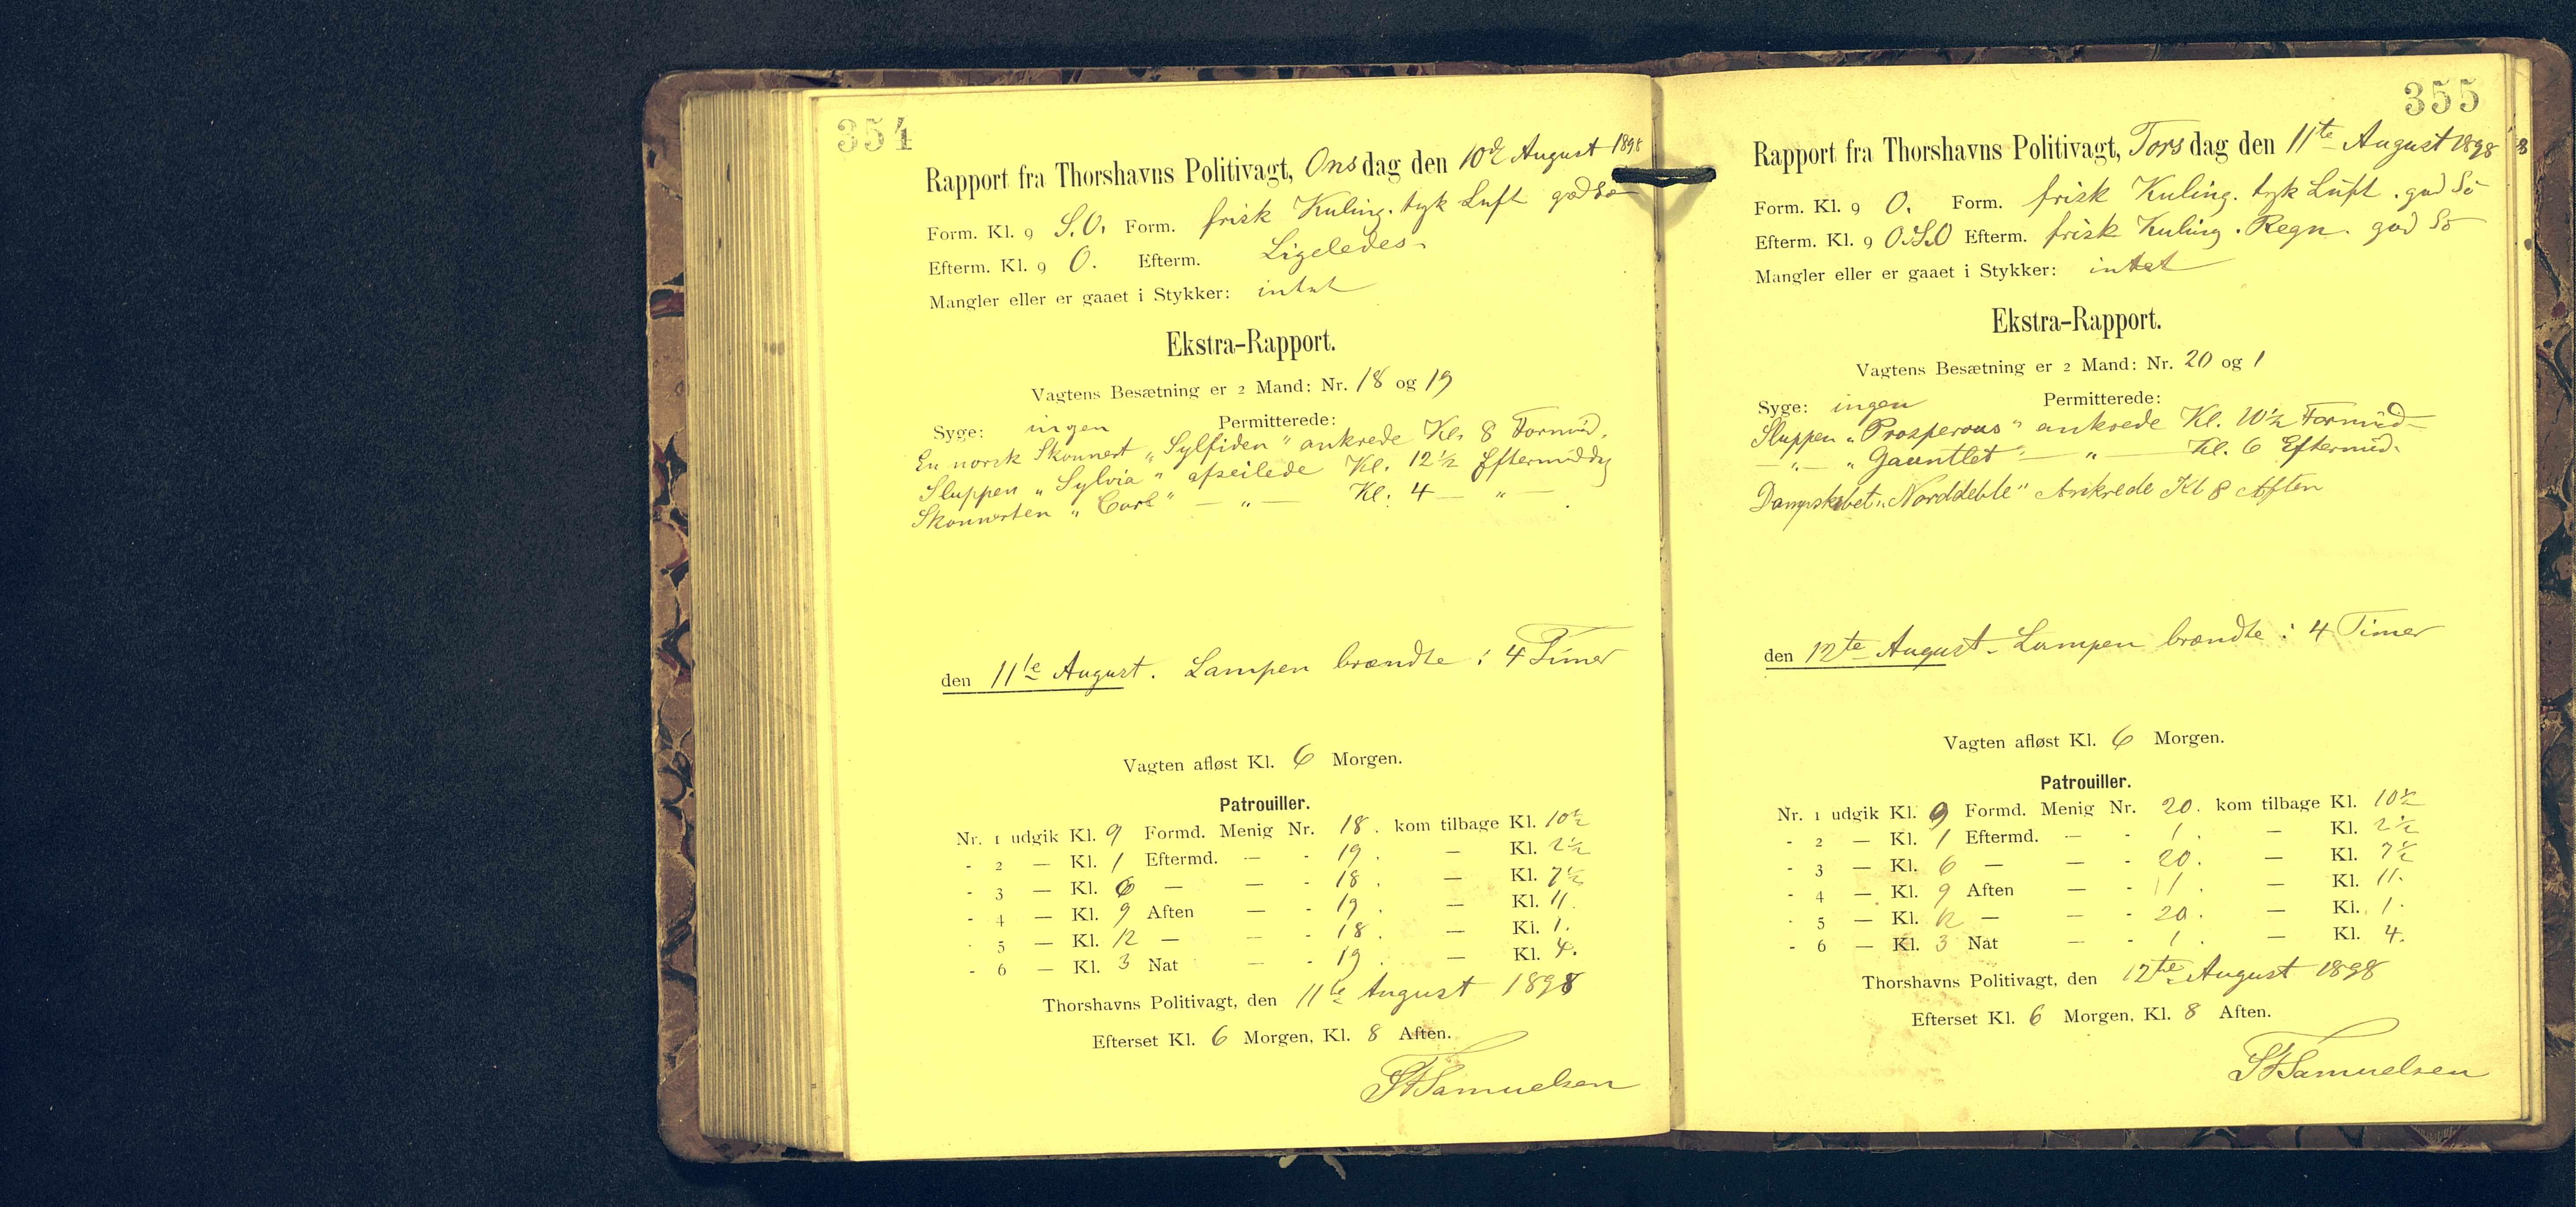 354
Rapport fra Thorshavns Politivagt, Onsdag den 10de August 1898
Form. Kl. 9 S.O. Form. frisk Kuling. tyk Luft god Sø
Efterm. Kl. 9 O. Efterm. Ligeledes
Mangler eller er gaaet i Stykker: intet
Ekstra-Rapport.
Vagtens Besætning er 2 Mand: Nr. 18 og 19
Syge: ingen Permitterede:
En norsk Skonnert „Sylfiden" ankrede Kl. 8 Formid.
Sluppen „Sylvia" afseilede Kl. 12½ Eftermiddg
Skonnerten „Carl" — „ — Kl. 4 — „ —
den 11te August. Lampen brændte i 4 Timer
Vagten afløst Kl. 6 Morgen.
Patrouiller.
Nr. 1 udgik Kl. 9 Formd. Menig Nr. 18. kom tilbage Kl. 10½
- 2 — Kl. 1 Eftermd. — - 19. — Kl. 2½
- 3 — Kl. 6 — — - 18. — Kl. 7½
- 4 — Kl. 9 Aften — - 19. — Kl. 11.
- 5 — Kl. 12 — — - 18. — Kl. 1.
- 6 — Kl. 3 Nat — - 19. — Kl. 4.
Thorshavns Politivagt, den 11te August 1898
Efterset Kl. 6 Morgen, Kl. 8 Aften.
Samuelsen
355
Rapport fra Thorshavns Politivagt, Torsdag den 11te August 1898
Form. Kl. 9 O. Form. frisk Kuling. tyk Luft. god Sö
Efterm. Kl. 9 O.S.O Efterm. frisk Kuling. Regn. god Sö
Mangler eller er gaaet i Stykker: intet
Ekstra-Rapport.
Vagtens Besætning er 2 Mand: Nr. 20 og 1
Syge: ingen Permitterede:
Sluppen „Prosperous" ankrede Kl. 10½ Formid
— „ — „Gauntlet" — „ — Kl. 6 Eftermid.
Dampskibet „Norddeble" Ankrede Kl 8 Aften
den 12te August. Lampen brændte i 4 Timer
Vagten afløst Kl. 6 Morgen.
Patrouiller.
Nr. 1 udgik Kl. 9 Formd. Menig Nr. 20. kom tilbage Kl. 10½
- 2 — Kl. 1 Eftermd. — - 1. — Kl. 2½
- 3 — Kl. 6 — — - 20. — Kl. 7½
- 4 — Kl. 9 Aften — - 1. — Kl. 11.
- 5 — Kl. 12 — — - 20. — Kl. 1.
- 6 — Kl. 3 Nat — - 1. — Kl. 4.
Thorshavns Politivagt, den 12te August 1898
Efterset Kl. 6 Morgen, Kl. 8 Aften.
Samuelsen